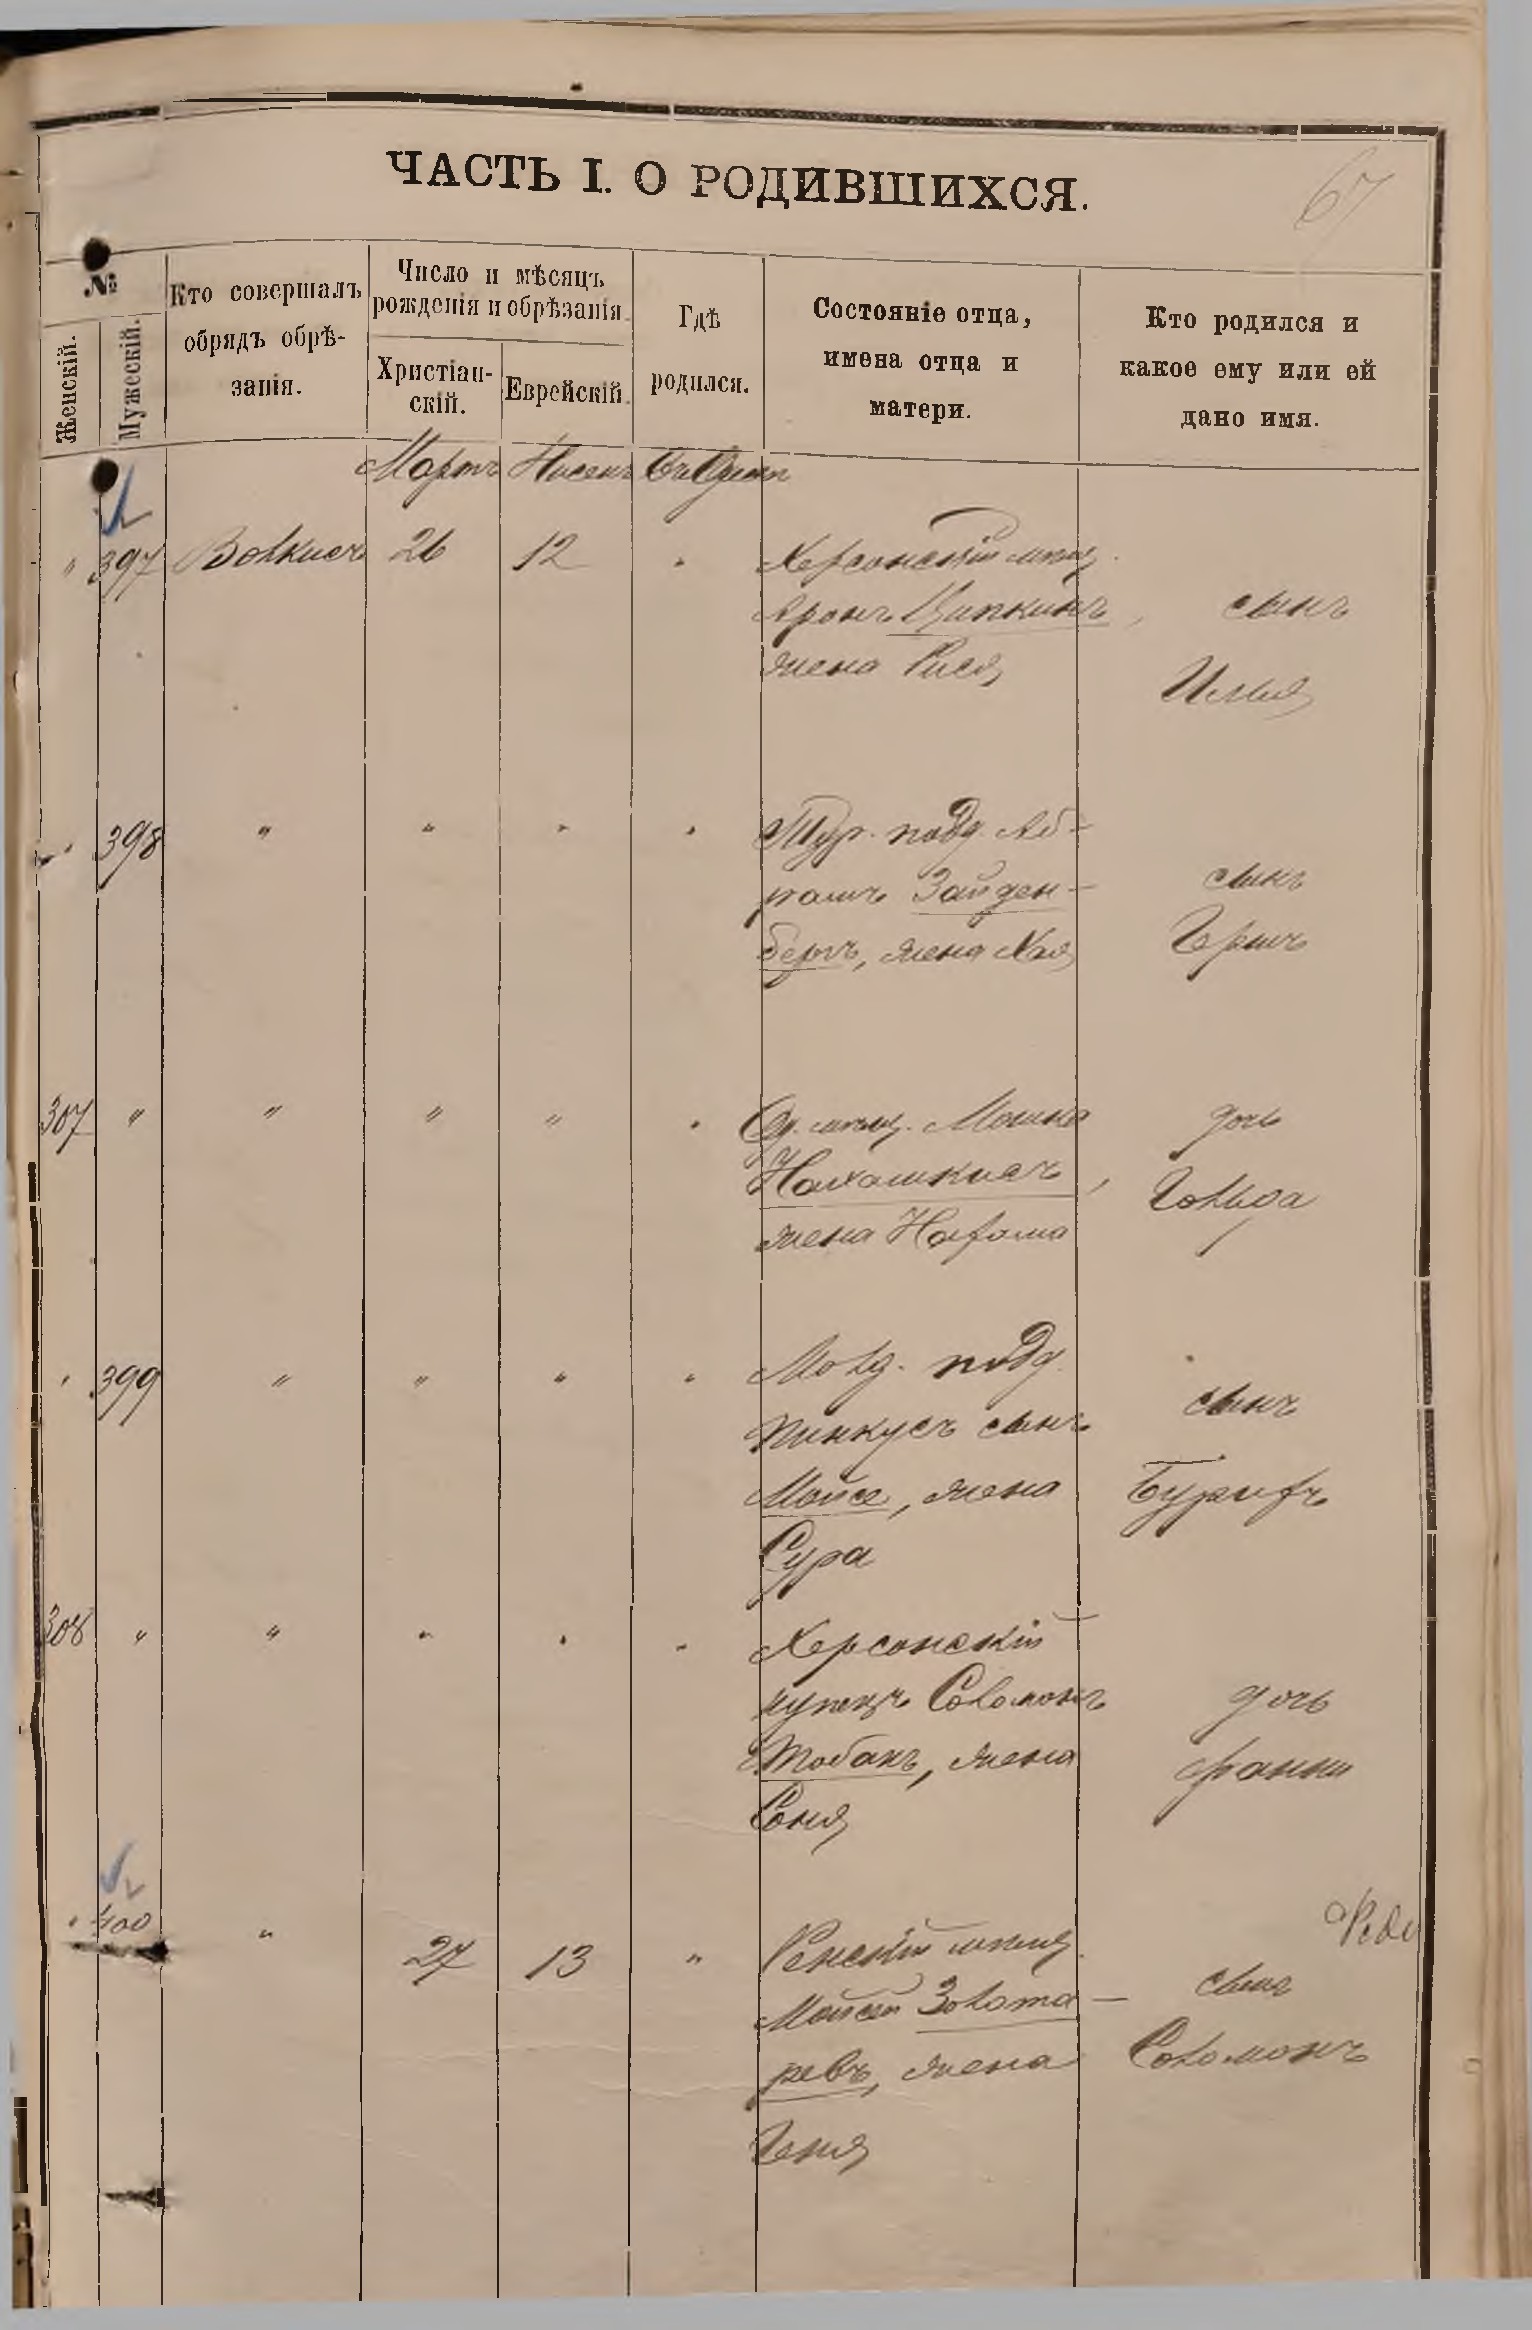 ЧАСТЬ I. О РОДИВШИХСЯ.
67
№
Женскій.
Мужескій.
Кто совершалъ
обрядъ обрѣ-
занія.
Число и мѣсяцъ
рожденія и обрѣзанія.
Христіан-
скій.
Еврейскій.
Гдѣ
родился.
Состояніе отца,
имена отца и
матери.
Кто родился и
какое ему или ей
дано имя.
Мартъ Нисенъ
" 397 26 12 "
Херсонскій мѣщ.
Аронъ Ципкинъ,
жена Рися
сынъ
Илья
" 398 " " " "
Тур. подд. Аб-
рамъ Зайден-
бергъ, жена Хая
сынъ
Гершъ
307 " " " " "
Од. мѣщ. Мошка
жена
дочь
Гольда
" 399 " " " "
Молд. подд.
Пинкусъ сынъ
Мойсе, жена
Сура
сынъ
308 " " " " "
Херсонскій
купецъ Соломонъ
Тобакъ, жена
Соня
дочь
Фанни
" 400 " 27 13 "
мѣщ.
Мойсей Золота-
ревъ, жена
Геня
сынъ
Соломонъ